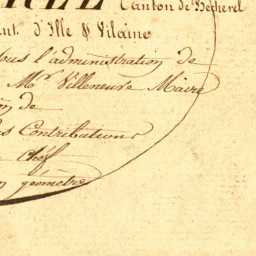 Canton de Bécherel
d'Ille & Vilaine
l'administration de
Mr. Villeneuve Maire
de
Contributions
Chef
géomètre